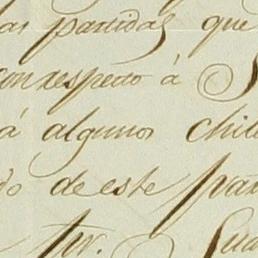 las partidas que
con respecto á
á algunos chile
do de este par
pr. Gua